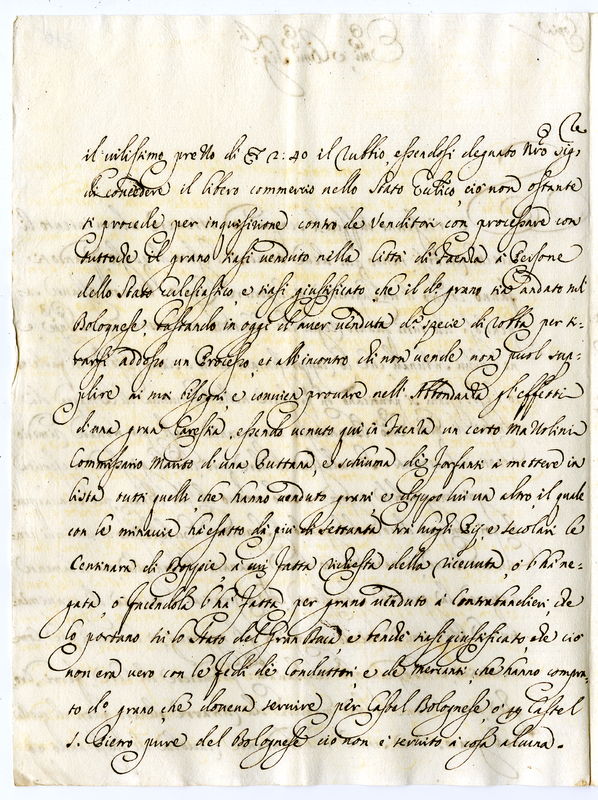 il vilissimo prezzo di 2:40 il Rubbio, essendosi degnato Nro Sig.re
di concedere il libero commercio nello Stato Eccl.ico, ciò non ostante
si procede per inquisizione contro de Venditori con processare con
tuttoche il grano siasi venduto nella Città di Faenza à Persone
dello Stato Eclesiastico e siasi giustificato che il d.o grano sia andato nel
Bolognese, bastando in oggi d'aver venduta d.a specie di robba per ti-
rarsi addosso un Processo, et all'incontro chi non vende non puol sup-
plire ai suoi bisogni, e convien provare nell'Abbondanza gl'effetti
di una gran Carestia, essendo venuto qui in Faenza un certo Mazzolini
Commissario Marito di una Puttana, e schiuma de' forfanti à mettere in
lista tutti quelli, che hanno venduto grani e doppo lui un altro, il quale
con le minaccie ha esatto da più di settanta trà luoghi Pij, e secolari le
Centinara di Doppie, à chi fatta richiesta della ricevuta, ò l'ha ne-
gata, ò facendola l'hà fatta per grano venduto à Contrabandieri che
lo portano trà lo Stato del Gran Duca, e benche siasi giustificato che ciò
non era vero con le fedi de Conduttori, e de mercanti, che hanno compra-
to d.o grano, che doveva servire per Castel Bolognese, ò per Castel
S. Pietro pure del Bolognese ciò non è servito à cosa alcuna.